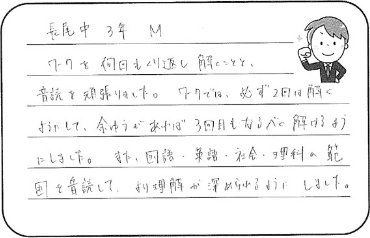 長尾中 3年 M
ワークを何回もくり返し解くことと、
音読を頑張りました。ワークでは、必ず2回は解く
ようにして、余ゆうがあれば3回目もなるべく解けるよう
にしました。また、国語・英語・社会・理科の範
囲を音読して、より理解が深められるようにしました。